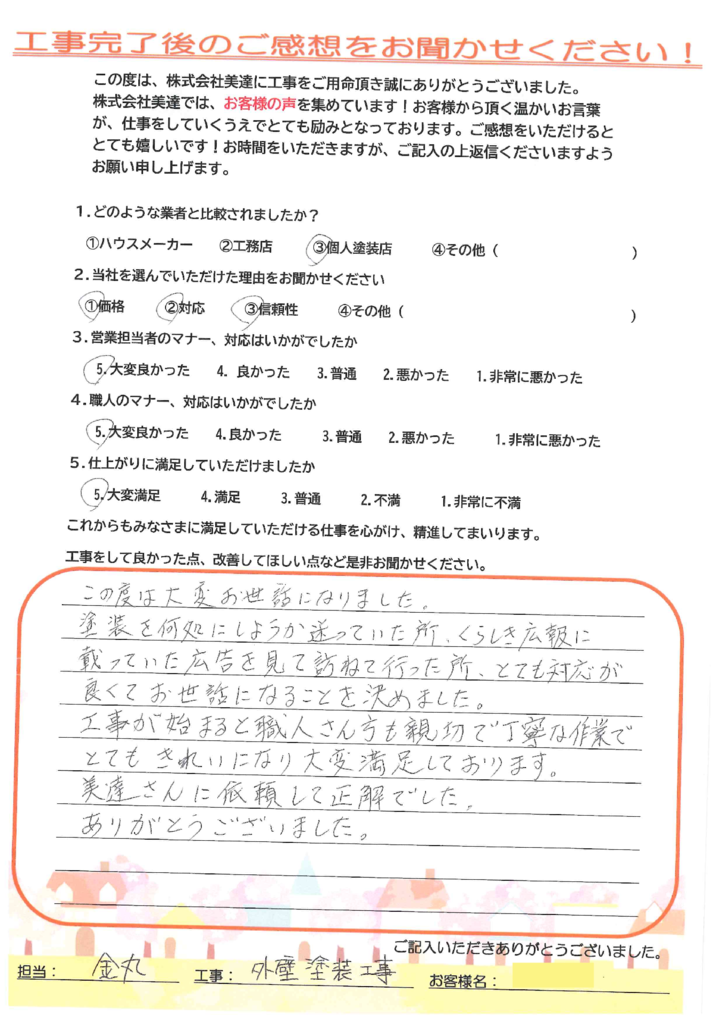 工事完了後のご感想をお聞かせください！
この度は、株式会社美達に工事をご用命頂き誠にありがとうございました。
株式会社美達では、お客様の声を集めています！お客様から頂く温かいお言葉
が、仕事をしていくうえでとても励みとなっております。ご感想をいただけると
とても嬉しいです！お時間をいただきますが、ご記入の上返信くださいますよう
お願い申し上げます。
１.どのような業者と比較されましたか？
①ハウスメーカー ②工務店 ③個人塗装店 ④その他（ ）
２.当社を選んでいただけた理由をお聞かせください
①価格 ②対応 ③信頼性 ④その他（ ）
３.営業担当者のマナー、対応はいかがでしたか
5.大変良かった 4. 良かった 3.普通 2.悪かった 1.非常に悪かった
４.職人のマナー、対応はいかがでしたか
5.大変良かった 4.良かった 3.普通 2.悪かった 1.非常に悪かった
５.仕上がりに満足していただけましたか
5.大変満足 4.満足 3.普通 2.不満 1.非常に不満
これからもみなさまに満足していただける仕事を心がけ、精進してまいります。
工事をして良かった点、改善してほしい点など是非お聞かせください。
この度は大変お世話になりました。
塗装を何処にしようか迷っていた所、くらしき広報に
載っていた広告を見て訪ねて行った所、とても対応が
良くてお世話になることを決めました。
工事が始まると職人さん方も親切で丁寧な作業で
とてもきれいになり大変満足しております。
美達さんに依頼して正解でした。
ありがとうございました。
ご記入いただきありがとうございました。
担当： 金丸 工事： 外壁塗装工事 お客様名：